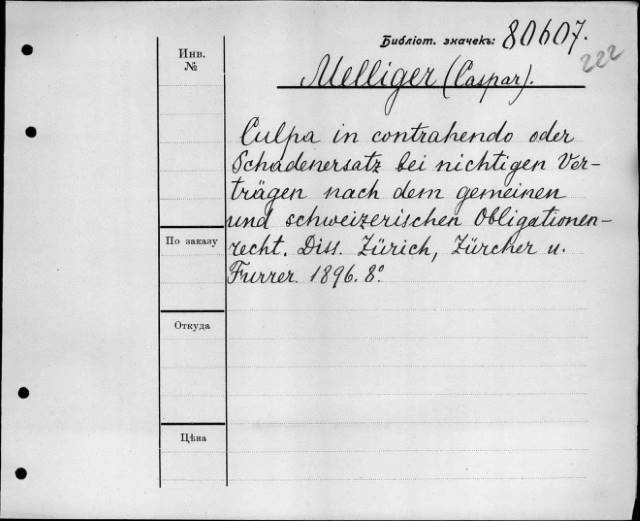 Библіот. значекъ: 80607.
222
Инв.
№
Melliger (Caspar).
Culpa in contrahendo oder
Schadenersatz bei nichtigen Ver-
trägen nach dem gemeinen
und schweizerischen Obligationen-
recht. Diss. Zürich, Zürcher u.
Furrer. 1896. 8°.
По заказу
Откуда
Цѣна